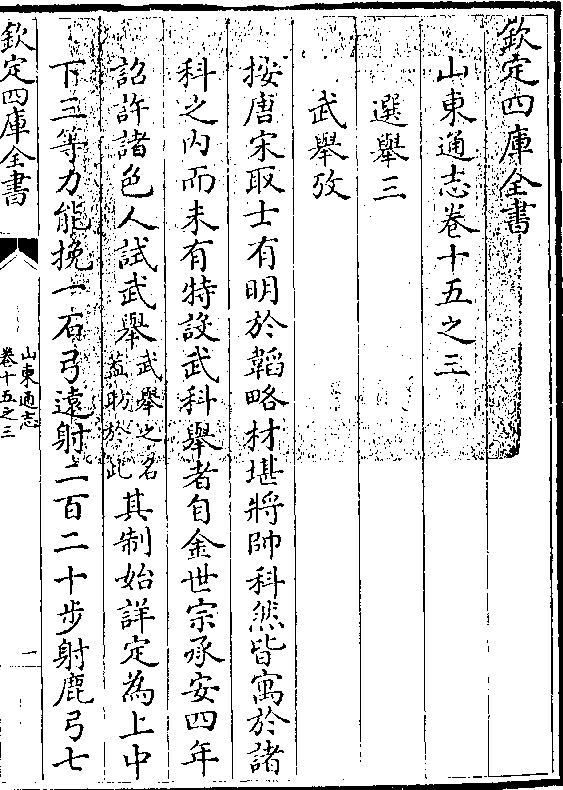 欽定四庫全書
山東通志卷十五之三
選舉三
武舉攷
按唐宋取士有明於韜略材堪將帥科然皆寓於諸
科之内而未有特設武科舉者自金世宗承安四年
詔許諸色人試武舉武舉之名葢昉於此其制始詳定為上中
下三等力能挽一石弓遠射二百二十步射鹿弓七
欽定四庫全書
山東通志
卷十五之三
一